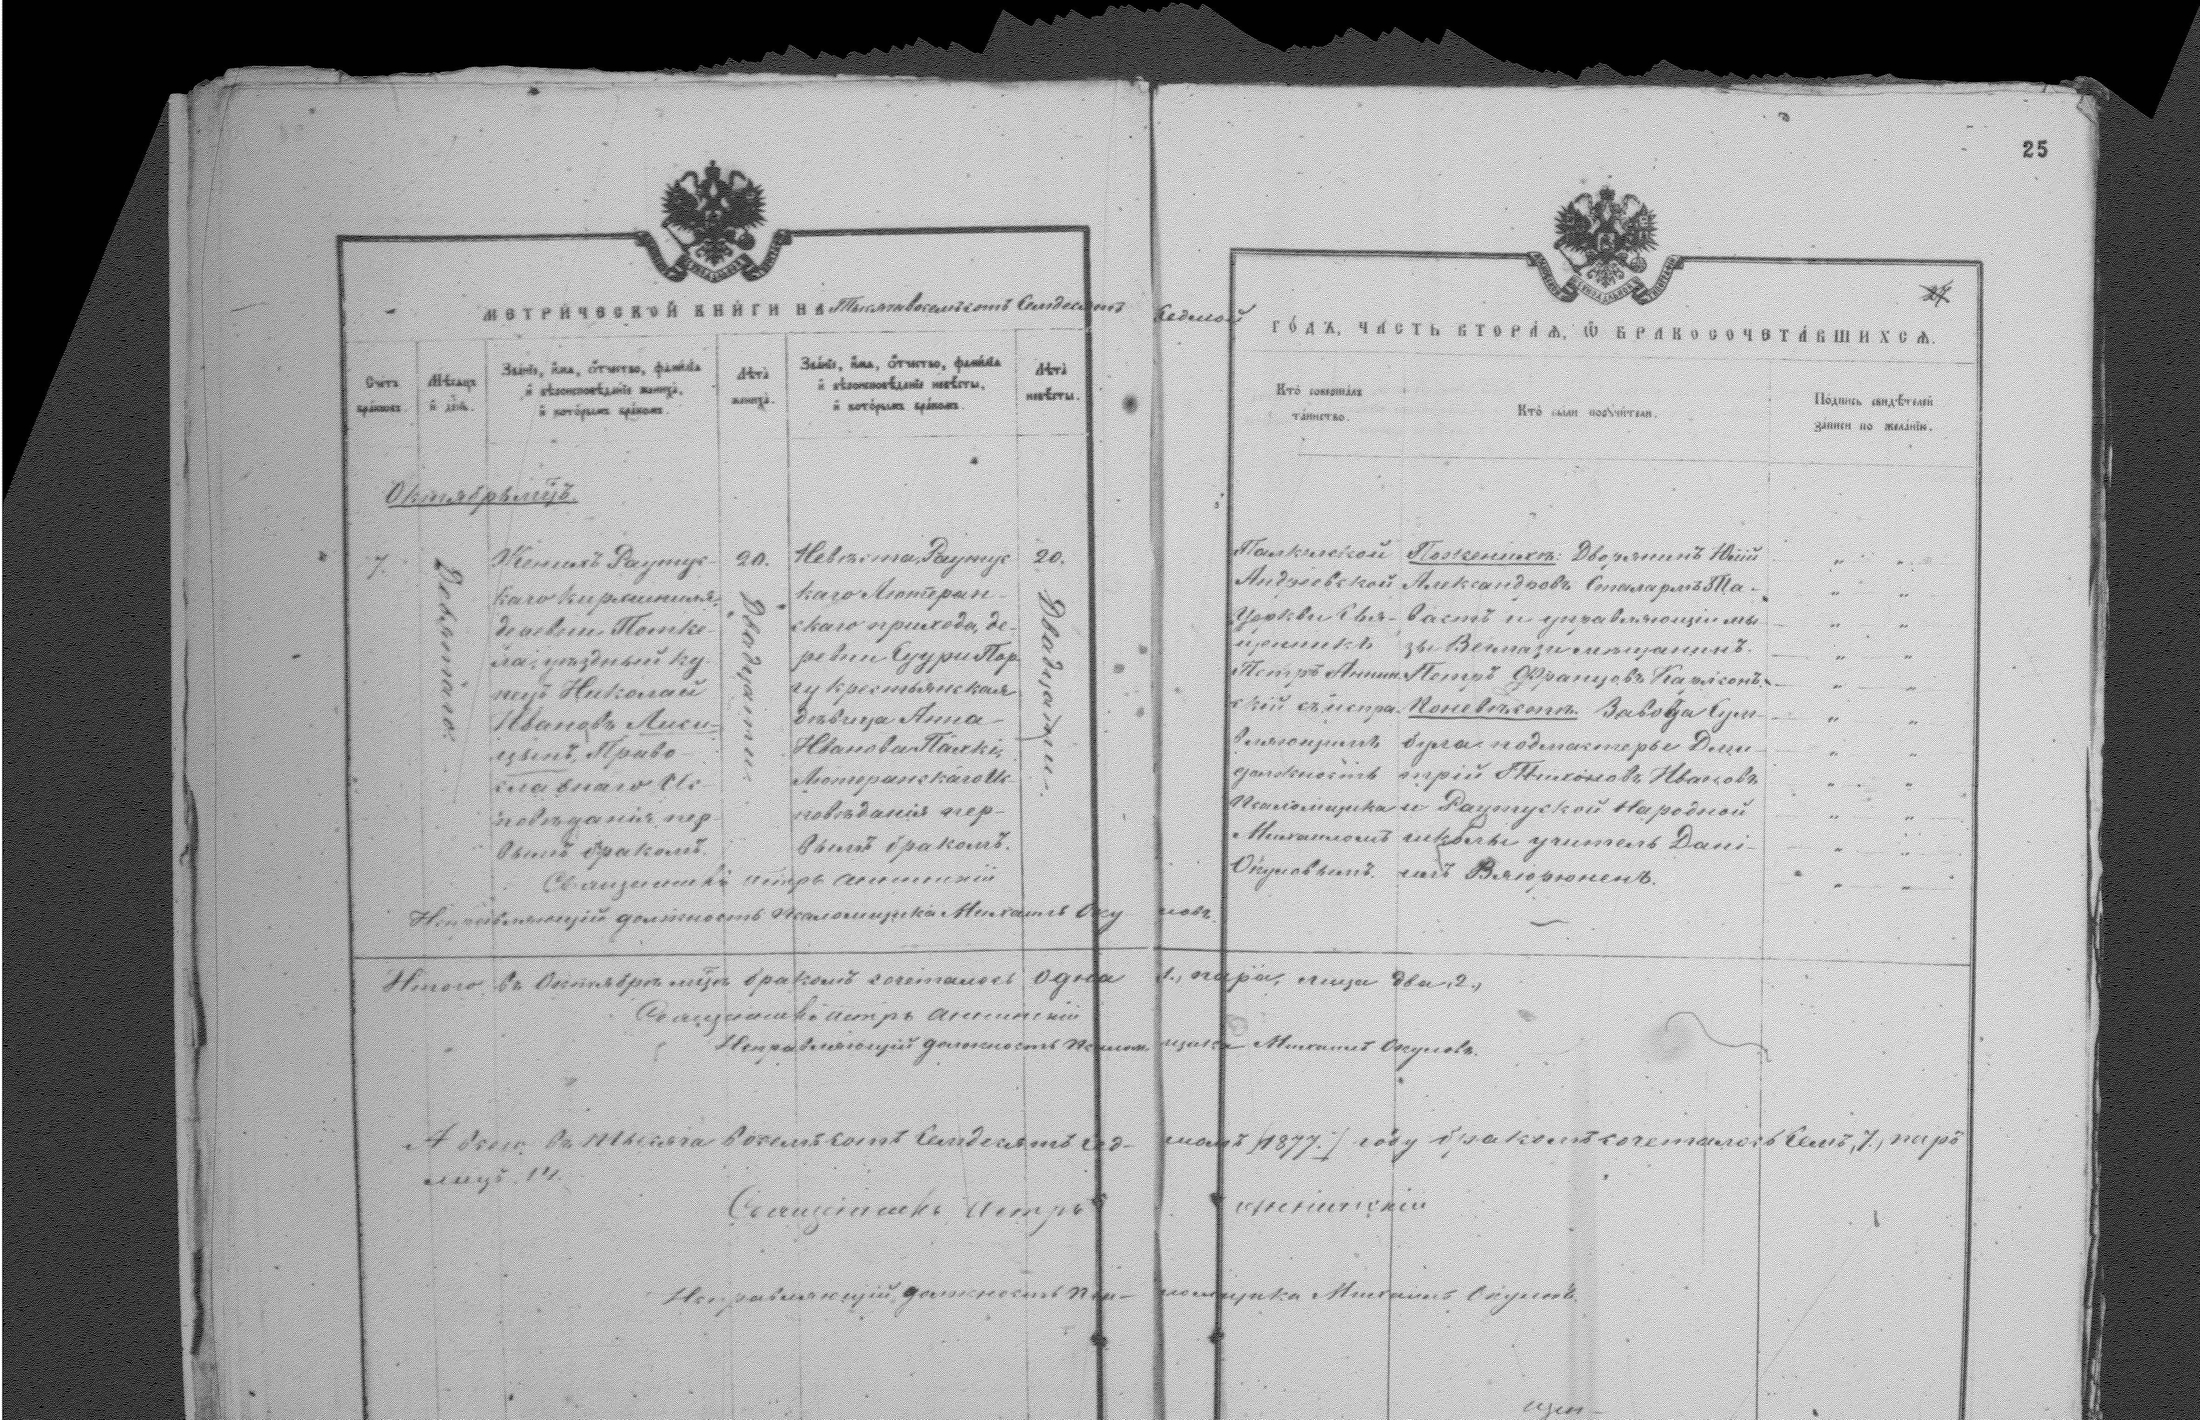 25
27
МЕТРИЧЕСКОЙ КНИГИ НА Тысяча восемьсотъ Семдесятъ Седмой ГОДЪ, ЧАСТЬ ВТОРАЯ, Ѿ БРАКОСОЧЕТАВШИХСЯ.
Счетъ
браковъ.
Мѣсяцъ
и день.
Званіе, имя, отчество, фамилія
и вѣроисповѣданіе жениха,
и которымъ бракомъ.
Лѣта
жениха.
Званіе, имя, отчество, фамилія
и вѣроисповѣданіе невѣсты,
и которымъ бракомъ.
Лѣта
невѣсты.
Кто совершалъ
таинство.
Кто были поручители.
Подпись свидѣтелей
записи по желанію.
Октябрь мцъ.
7.
Девятаго.
Женихъ Раутус-
каго Кирхшпиля,
деревни Потке-
ла, уѣздный ку-
пецъ Николай
Ивановъ Лиси-
цынъ, Право-
славнаго Ис-
повѣданія, пер-
вымъ бракомъ.
20.
Двадцати.
Невѣста, Раутус
каго Лютеран-
скаго прихода, де-
ревни Суури Пор-
гу крестьянская
дѣвица Анна
Иванова Пахки,
Лютеранскаго Ис-
повѣданія пер-
вымъ бракомъ.
20.
Двадцати.
Палкельской
Андреевской
Церкви Свя-
щенникъ
Петръ Аннин-
скій съ испра-
вляющимъ
должность
Псаломщика
Михаиломъ
Окуловымъ.
По женихѣ: Дворянинъ Юлій
Александровъ
и управляющій мы-
зы мѣщанинъ
Петръ Францовъ Карлсонъ.
По невѣстѣ: Завода Сум-
була подмастерье Дми-
трій Тихоновъ Ивановъ
и Раутуской Народной
школы учитель Дані-
илъ Вяюрюненъ.
Священникъ Петръ Аннинскій
Исправляющій должность псаломщика Михаилъ Окуловъ.
Итого въ Октябрѣ мцѣ бракомъ сочеталось одна 1., пара, лица два, 2.,
Священникъ Петръ Аннинскій
Исправляющій должность псаломщика Михаилъ Окуловъ.
А всего въ тысяча восемьсотъ Семдесятъ сед-момъ /1877./ году бракомъ сочеталось Семь, 7., паръ
лицъ 14.
Священникъ Петръ Аннинскій
Исправляющій должность Пса-ломщика Михаилъ Окуловъ.